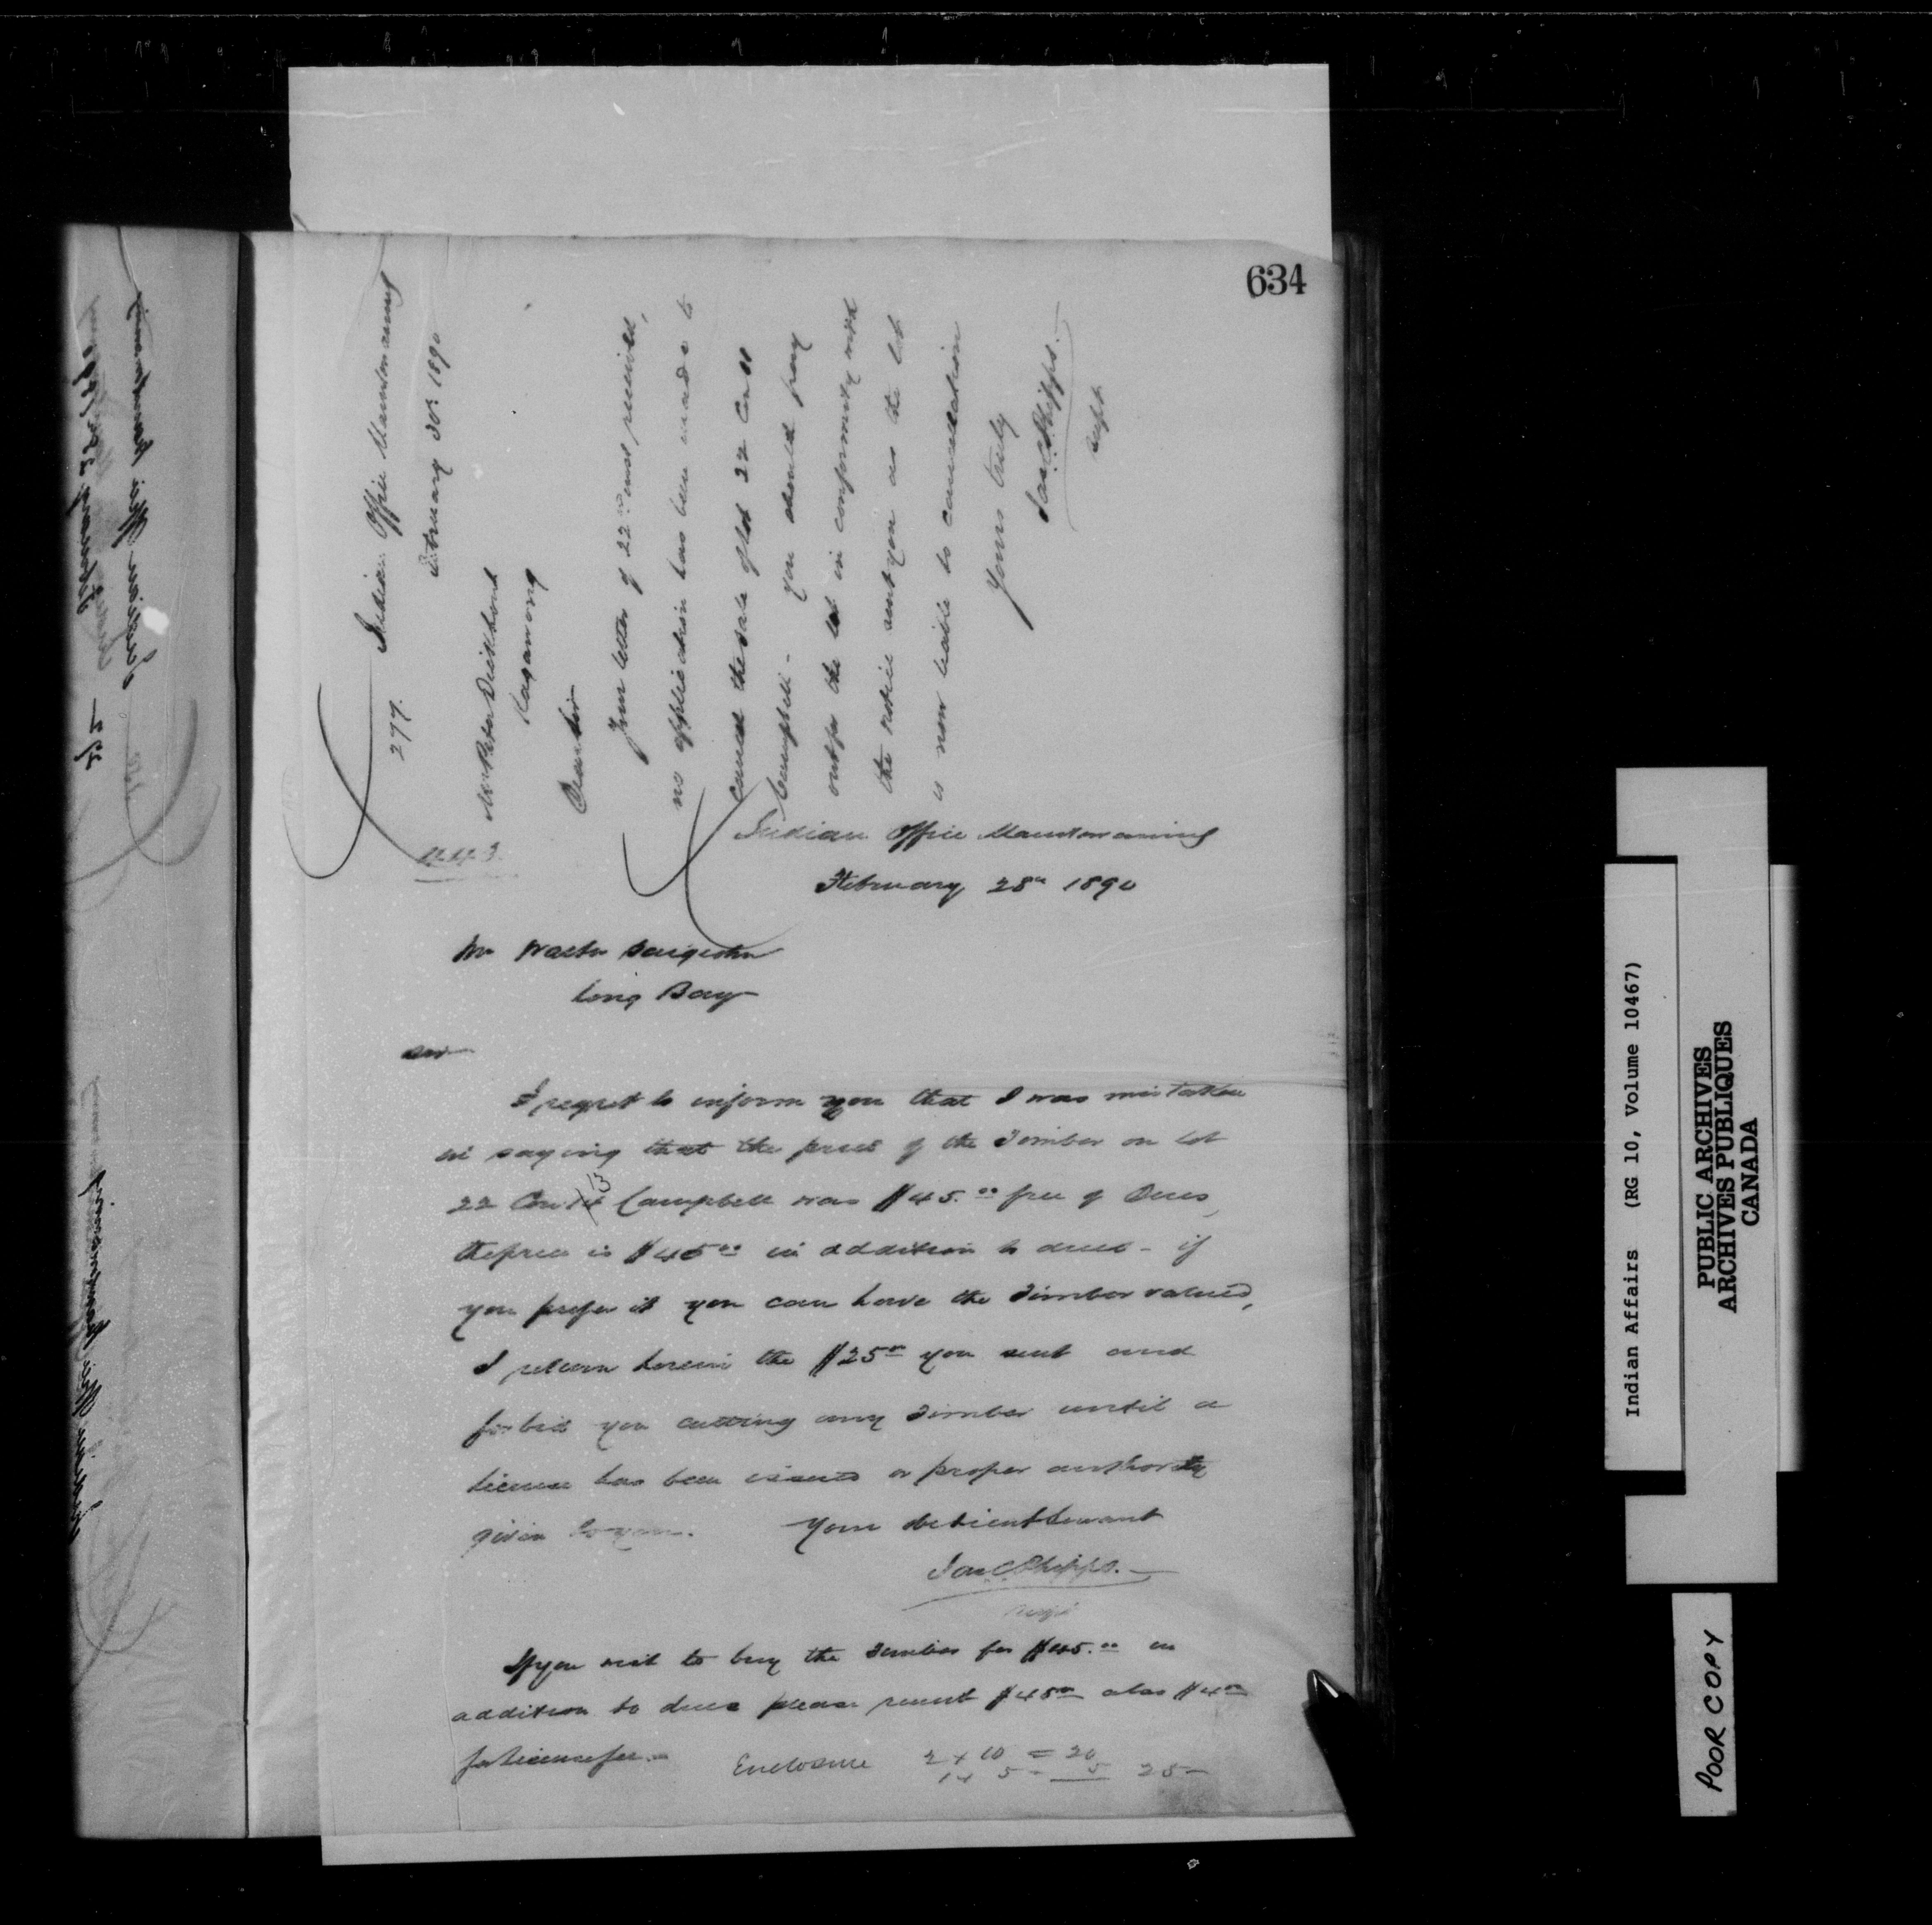 634
277. Indian Office Manitowaning
February 1890
Mr Peter
Kagawong
Dear Sir
Your letter of 22nd inst received,
no application has been made to
cancel the sale of lot 22 Con 11
Campbell - you should pay
out for the lot in conformity with
the notice sent you as the lot
is now liable to cancellation
Yours truly
Jas C Phipps.
Supt
443
Indian Office Manitowaning
February 28th 1890
Mr Walter
Long Bay
Sir
I regret to inform you that I was mistaken
in saying that the price of the Timber on lot
22 Con 13 Campbell was $45.00 free of Dues,
the price is $45.00 in addition to dues - if
you prefer it you can have the Timber valued,
I return herein the $25.00 you sent and
forbid you cutting any Timber until a
license has been issued or proper authority
given to you. Your obedient Servant
Jas C Phipps.
Supt
If you wish to buy the Timber for $45.00 in
addition to dues please remit $45.00 also $4.00
for license fee.-
Enclosure 2 x 10 = 20
1 x 5 = 5 25-
Indian Affairs (RG 10, Volume 10467)
PUBLIC ARCHIVES
ARCHIVES PUBLIQUES
CANADA
POOR COPY